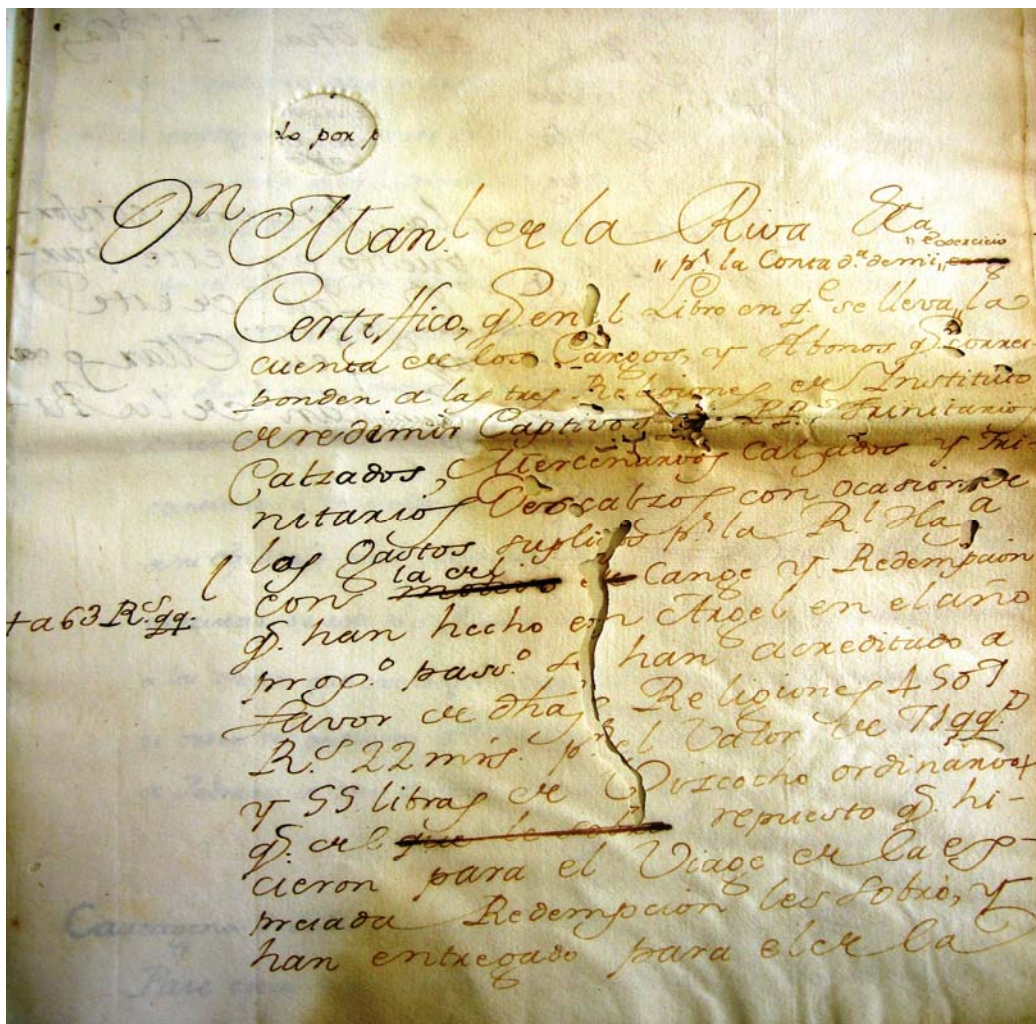 do por p
Dn Man.l de la Riva &ta
" pr. la Contad.a de mi " exercicio
Certiffico, q. en el Libro en q.e se lleva la
cuenta de los Cargos, y Abonos q. corres-
ponden a las tres Religiones de S. Instituto
de redimir Captivos PP. Trinitarios
Calzados, Mercenarios Calzados y Tri
nitarios Descalzos con ocasion de
los Gastos suplidos pr. la Rl. Haz.a
con la del Cange y Redempcion
q. han hecho en Argel en el año
prox.o pasd.o se han acreditado a
favor de dhas Religiones 4507
R.s 22 mrs. pr. el Valor de 71 qq.
+ a 63 R.s qq.
y 55 libras de Vizcocho ordinario +
q. del repuesto q. hi-
cieron para el Viage de la ex-
presada Redempcion les sobró, y
han entregado para el de la